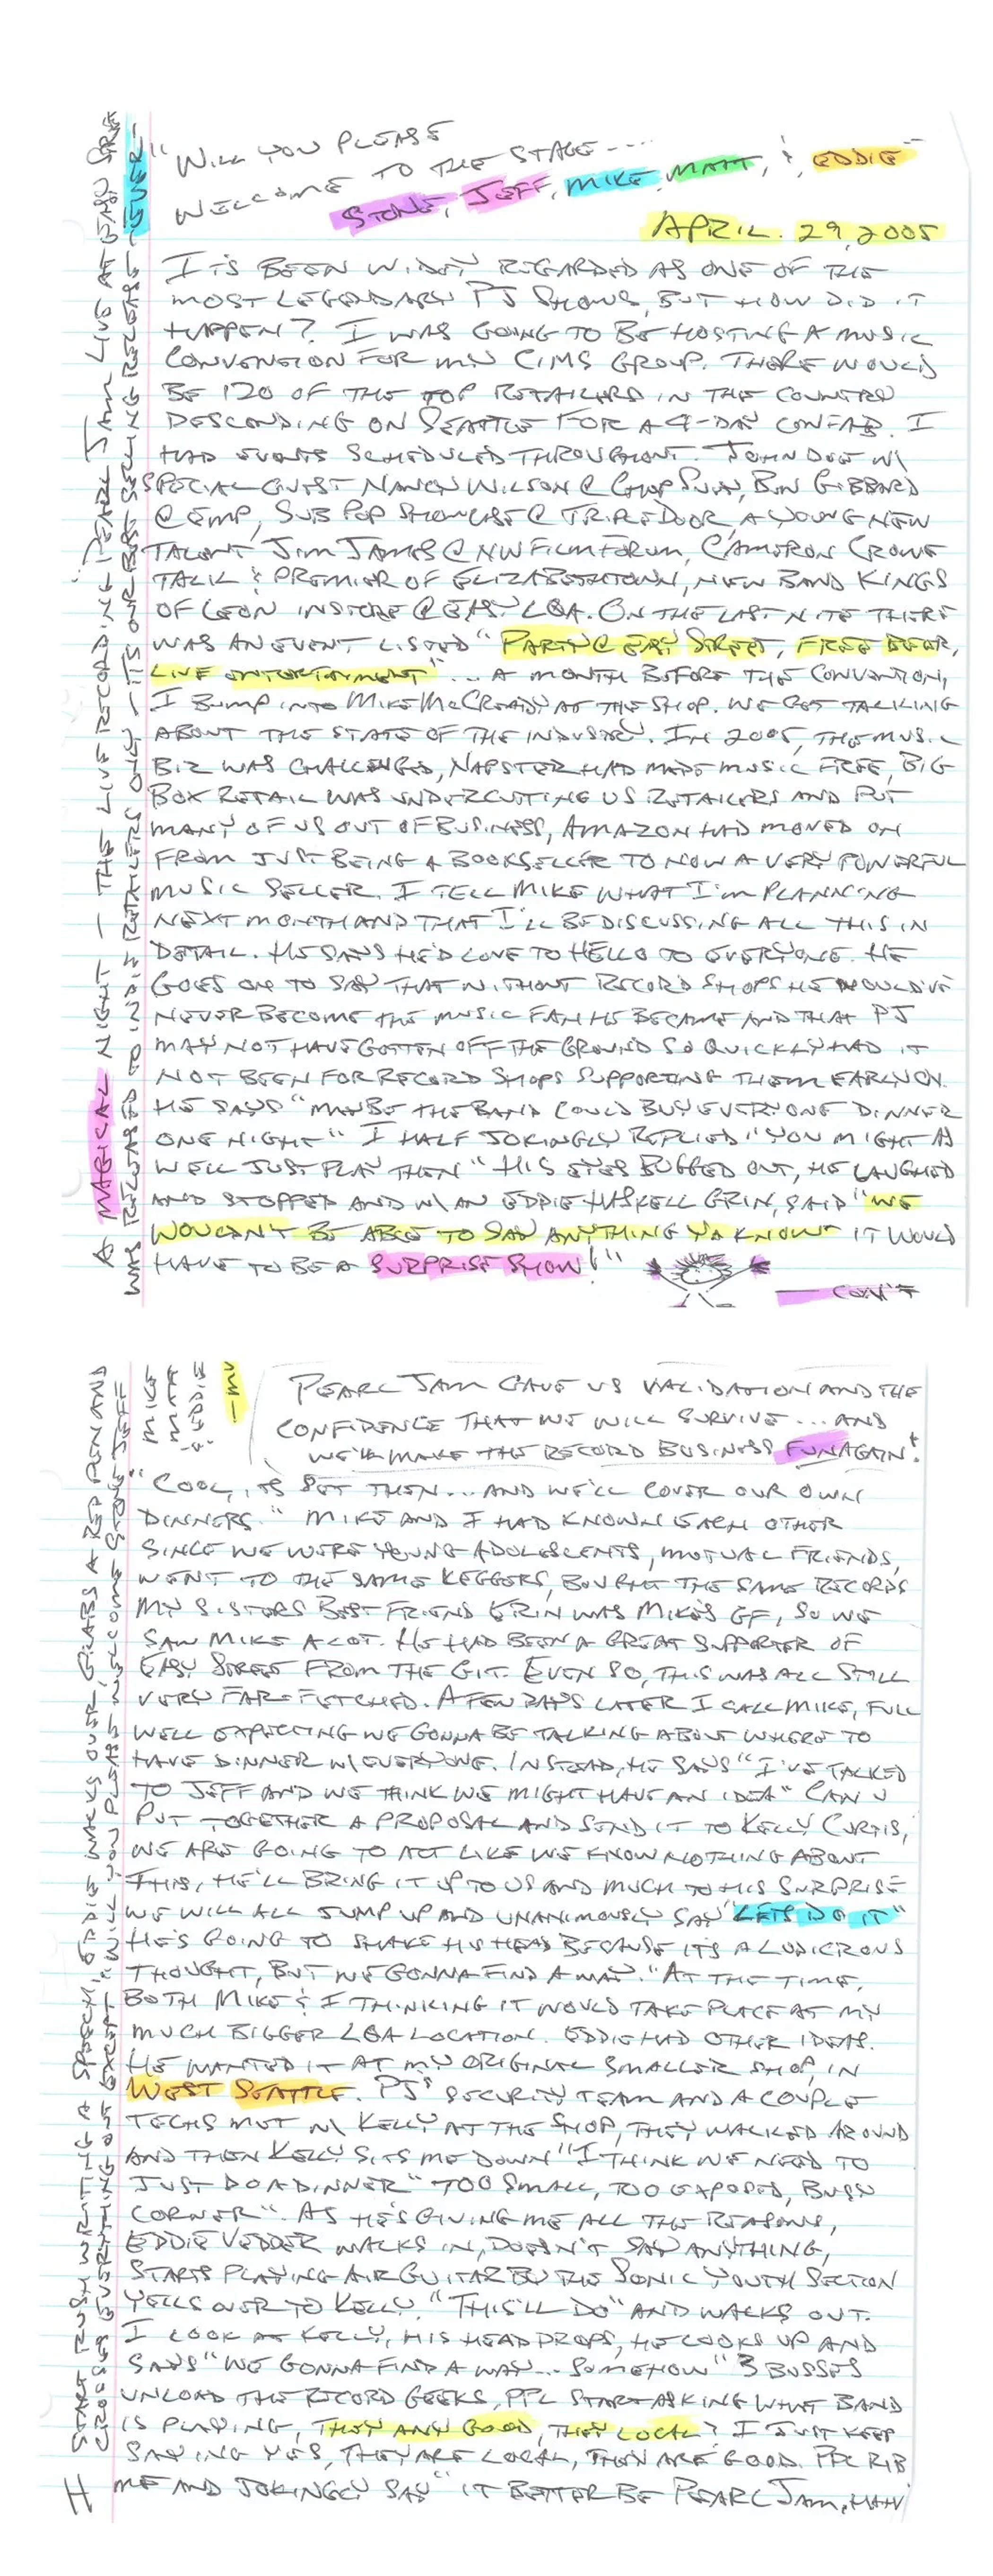 "WILL YOU PLEASE
WELCOME TO THE STAGE ---..
STONE, JEFF, MIKE, MATT, & EDDIE"
APRIL. 29, 2005
ITS BEEN WIDELY REGARDED AS ONE OF THE
MOST LEGENDARY PJ SHOWS, BUT HOW DID IT
HAPPEN? I WAS GOING TO BE HOSTING A MUSIC
CONVENSION FOR MY CIMS GROUP. THERE WOULD
BE 120 OF THE TOP RETAILERS IN THE COUNTRY
DESCENDING ON SEATTLE FOR A 4-DAY CONFAB. I
HAD EVENTS SCHEDULED THROUGHOUT. JOHN DOE W/
SPECIAL GUEST NANCY WILSON @ CHOP SUEY, BEN GIBBARD
@ EMP, SUB POP SHOWCASE @ TRIPLE DOOR, A YOUNG NEW
TALENT JIM JAMES @ NW FILM FORUM, CAMERON CROWE
TALK & PREMIER OF ELIZABETHTOWN, NEW BAND KINGS
OF LEON INSTORE @ EASY LQA. ON THE LAST NITE THERE
WAS AN EVENT LISTED "PARTY @ EASY STREET, FREE BEER,
LIVE ENTERTAINMENT"... A MONTH BEFORE THE CONVENTION,
I BUMP INTO MIKE McCREADY AT THE SHOP. WE GET TALKING
ABOUT THE STATE OF THE INDUSTRY. IN 2005, THE MUSIC
BIZ WAS CHALLENGED, NAPSTER HAD MADE MUSIC FREE, BIG
BOX RETAIL WAS UNDERCUTTING US RETAILERS AND PUT
MANY OF US OUT OF BUSINESS, AMAZON HAD MOVED ON
FROM JUST BEING A BOOKSELLER TO NOW A VERY POWERFUL
MUSIC SELLER. I TELL MIKE WHAT I'M PLANNING
NEXT MONTH AND THAT I'LL BE DISCUSSING ALL THIS IN
DETAIL. HE SAYS HE'D LOVE TO HELLO TO EVERYONE. HE
GOES ON TO SAY THAT WITHOUT RECORD SHOPS HE WOULD'VE
NEVER BECOME THE MUSIC FAN HE BECAME AND THAT PJ
MAY NOT HAVE GOTTEN OFF THE GROUND SO QUICKLY HAD IT
NOT BEEN FOR RECORD SHOPS SUPPORTING THEM EARLY ON.
HE SAYS "MAYBE THE BAND COULD BUY EVERYONE DINNER
ONE NIGHT" I HALF JOKINGLY REPLIED "YOU MIGHT AS
WELL JUST PLAY THEN" HIS EYES BUGGED OUT, HE LAUGHED
AND STOPPED AND W/ AN EDDIE HASKELL GRIN, SAID "WE
WOULDN'T BE ABLE TO SAY ANYTHING YA KNOW" IT WOULD
HAVE TO BE A SURPRISE SHOW!"
— CON'T
A MAGICAL NIGHT — THE LIVE RECORDING "PEARL JAM LIVE AT EASY STREET
WAS RELEASED TO INDIE RETAILERS ONLY — ITS OUR BEST SELLING RELEASE EVER —
PEARL JAM GAVE US VALIDATION AND THE
CONFIDENCE THAT WE WILL SURVIVE... AND
WE'LL MAKE THE RECORD BUSINESS FUN AGAIN!
"COOL, ITS SET THEN... AND WE'LL COVER OUR OWN
DINNERS." MIKE AND I HAD KNOWN EACH OTHER
SINCE WE WERE YOUNG ADOLESCENTS, MUTUAL FRIENDS,
WENT TO THE SAME KEGGERS, BOUGHT THE SAME RECORDS
MY SISTERS BEST FRIEND ERIN WAS MIKES GF, SO WE
SAW MIKE A LOT. HE HAD BEEN A GREAT SUPPORTER OF
EASY STREET FROM THE GIT. EVEN SO, THIS WAS ALL STILL
VERY FAR-FETCHED. A FEW DAYS LATER I CALL MIKE, FULL
WELL EXPECTING WE GONNA BE TALKING ABOUT WHERE TO
HAVE DINNER W/ EVERYONE. INSTEAD, HE SAYS "I'VE TALKED
TO JEFF AND WE THINK WE MIGHT HAVE AN IDEA" CAN U
PUT TOGETHER A PROPOSAL AND SEND IT TO KELLY CURTIS,
WE ARE GOING TO ACT LIKE WE KNOW NOTHING ABOUT
THIS, HE'LL BRING IT UP TO US AND MUCH TO HIS SURPRISE
WE WILL ALL JUMP UP AND UNANIMOUSLY SAY "LETS DO IT"
HE'S GOING TO SHAKE HIS HEAD BECAUSE ITS A LUDICROUS
THOUGHT, BUT WE GONNA FIND A WAY." AT THE TIME,
BOTH MIKE & I THINKING IT WOULD TAKE PLACE AT MY
MUCH BIGGER LQA LOCATION. EDDIE HAD OTHER IDEAS.
HE WANTED IT AT MY ORIGINAL SMALLER SHOP, IN
WEST SEATTLE. PJ'S SECURITY TEAM AND A COUPLE
TECHS MET W/ KELLY AT THE SHOP, THEY WALKED AROUND
AND THEN KELLY SITS ME DOWN "I THINK WE NEED TO
JUST DO A DINNER" TOO SMALL, TOO EXPOSED, BUSY
CORNER". AS HE'S GIVING ME ALL THE REASONS,
EDDIE VEDDER WALKS IN, DOESN'T SAY ANYTHING,
STARTS PLAYING AIR GUITAR BY THE SONIC YOUTH SECTION
YELLS OVER TO KELLY, "THIS'LL DO" AND WALKS OUT.
I LOOK AT KELLY, HIS HEAD DROPS, HE LOOKS UP AND
SAYS "WE GONNA FIND A WAY... SOMEHOW" 3 BUSSES
UNLOAD THE RECORD GEEKS, PPL START ASKING WHAT BAND
IS PLAYING, THEY ANY GOOD, THEY LOCAL? I JUST KEEP
SAYING YES, THEY ARE LOCAL, THEY ARE GOOD. PPL RIB
ME AND JOKINGLY SAY "IT BETTER BE PEARL JAM, HAH
I START RUSH WRITING A SPEECH, EDDIE WALKS OVER, GRABS A RED PEN AND
CROSSES EVERYTHING OUT EXCEPT, "WILL YOU PLEASE WELCOME STONE, JEFF
MIKE
MATT
& EDDIE"